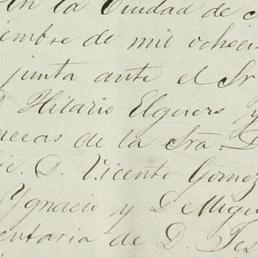 en la Ciudad de
iembre de mil ochoci
junta ante el Sr
D Hilario Elguero y
necas de la Sra. D
Lic. D. Vicente Gomez
Ygnacio y D Migu
entaria de D. Jos